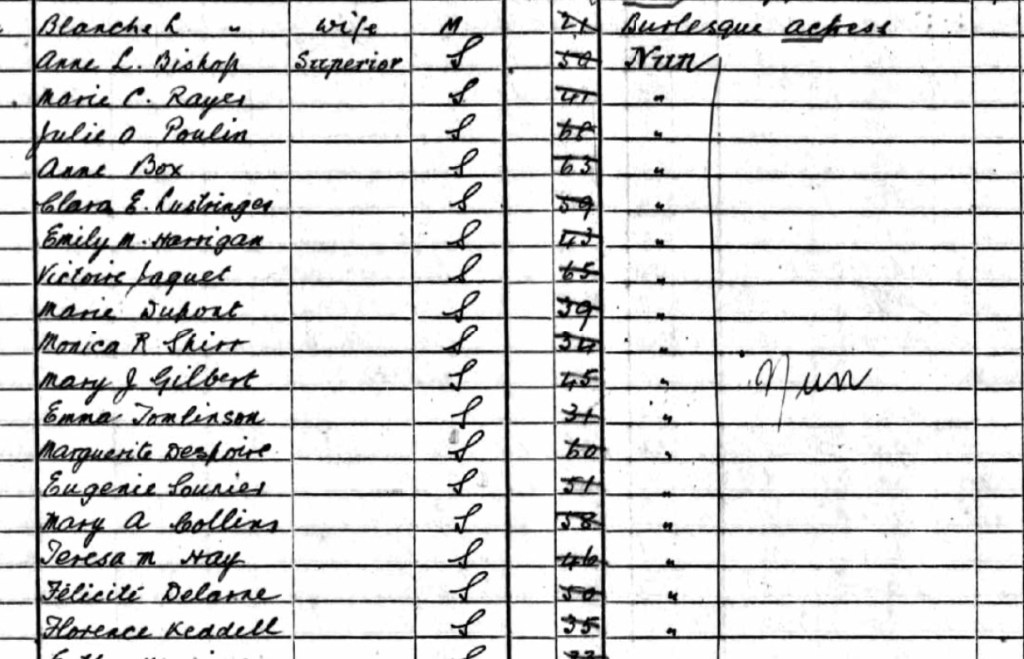 Blanche L " Wife M 21 Burlesque actress
Anne L. Bishop Superior S 50 Nun
Marie C. Rayer S 41 "
Julie A Poulin S 68 "
Anne Box S 63 "
Clara E. Lustringer S 59 "
Emily M. Harrigan S 43 "
Victoire Jaquet S 65 "
Marie Dupont S 39 "
Monica R Shirr S 34 "
Mary J Gilbert S 45 " Nun
Emma Tomlinson S 31 "
Marguerite Despoire S 60 "
Eugenie Sounier S 51 "
Mary A Collins S 58 "
Teresa M Hay S 46 "
Félicité Delarne S 50 "
Florence Keddell S 35 "
S